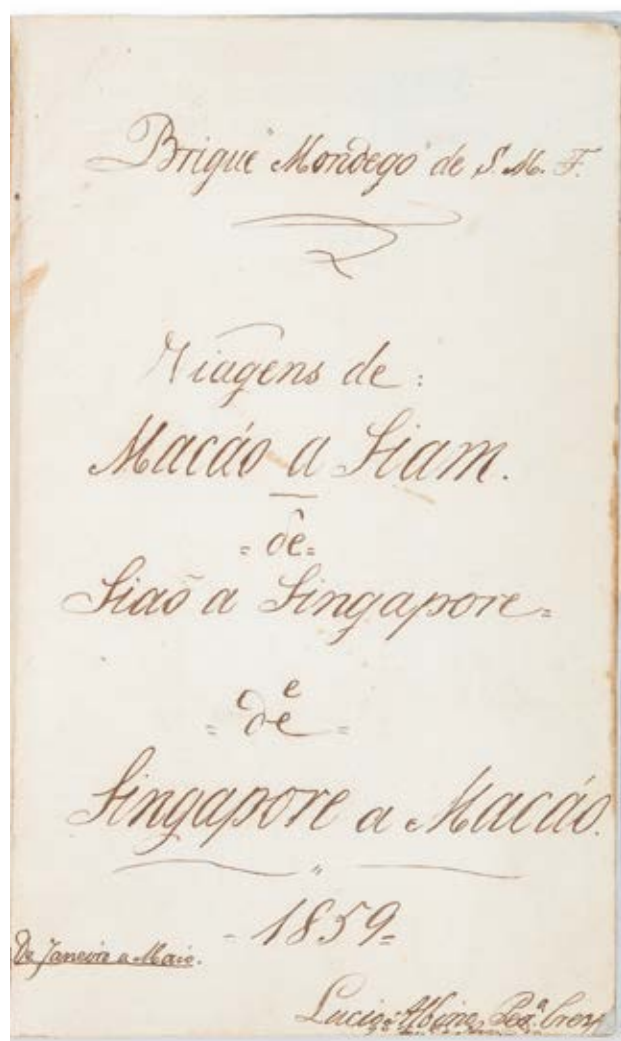 Brigue "Mondego" de S. M. F.
Viagens de:
Macáo a Siam.
= de =
Siaõ a Singapore =
e
= de =
Singapore a Macáo.
- 1859 =
De Janeiro a Maio.
Lucio Albino Per.ª Crespo